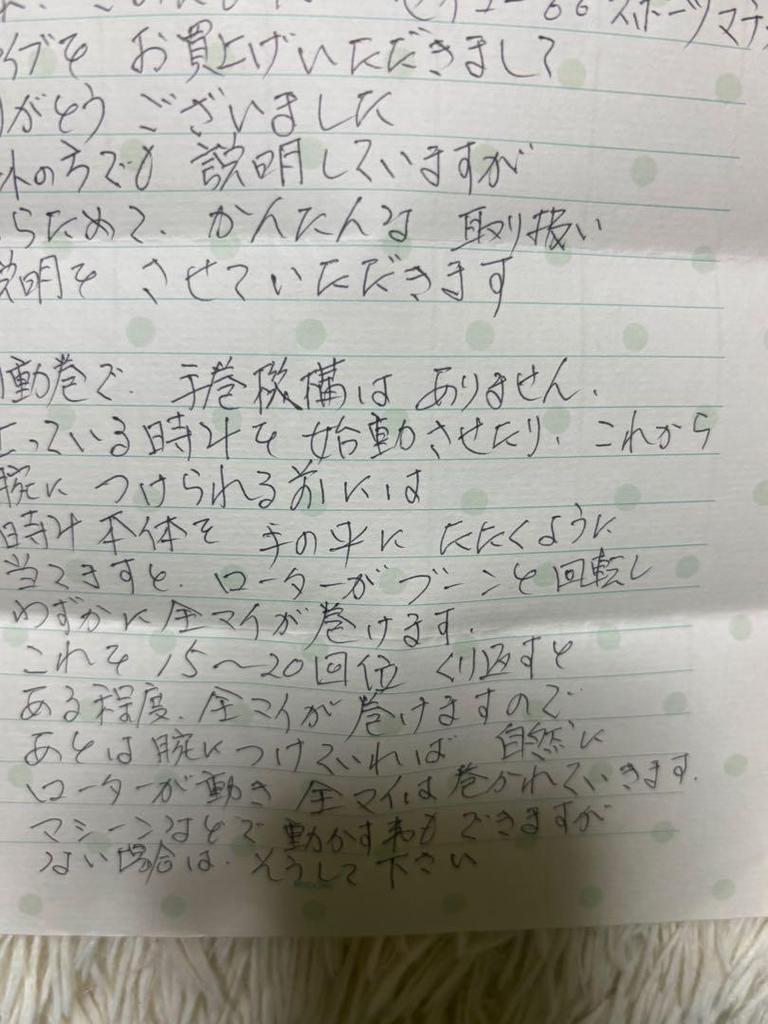 セイコー66スポーツマチ
イブを お買上げいただきまして
がとう ございました
の方でも 説明していますが
らためて、かんたんな 取り扱い
説明を させていただきます
動巻で、手巻機構は ありません、
っている時計を 始動させたり、これから
腕に つけられる前には
時計本体を 手の平に たたくように
当てますと、ローターが ブーンと回転し
わずかに全マイが巻けます、
これを 15〜20回位 くり返すと
ある程度、全マイが巻けますので
あとは腕につけていれば 自然に
ローターが動き 全マイは巻かれていきます、
マシーンなどで動かす事もできますが
ない場合は、そうして下さい